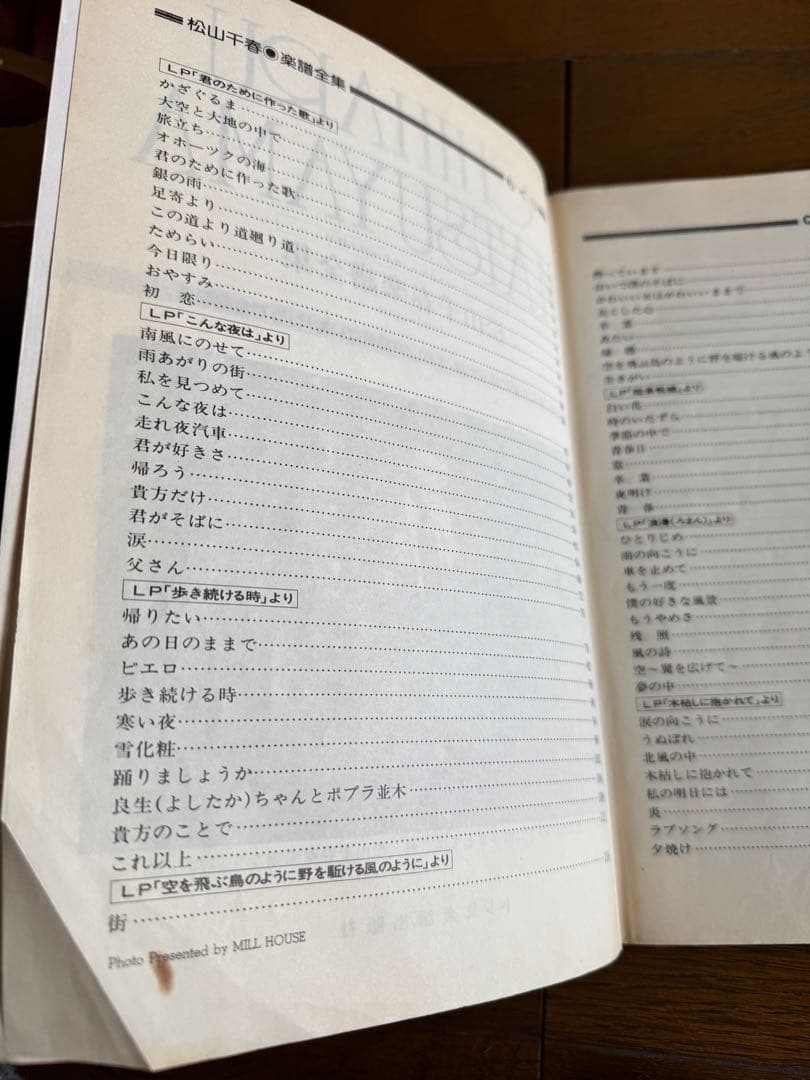 松山千春◉楽譜全集
LP「君のために作った歌」より
かざぐるま
大空と大地の中で
旅立ち
オホーツクの海
君のために作った歌
銀の雨
足寄より
この道より道廻り道
ためらい
今日限り
おやすみ
初 恋
LP「こんな夜は」より
南風にのせて
雨あがりの街
私を見つめて
こんな夜は
走れ夜汽車
君が好きさ
帰ろう
貴方だけ
君がそばに
涙
父さん
LP「歩き続ける時」より
帰りたい
あの日のままで
ピエロ
歩き続ける時
寒い夜
雪化粧
踊りましょうか
良生(よしたか)ちゃんとポプラ並木
貴方のことで
これ以上
LP「空を飛ぶ鳥のように野を駈ける風のように」より
街
Photo Presented by MILL HOUSE
酔っています
おいで僕のそばに
かわいい女はかわいいままで
卒 業
あたい
帰 郷
空を飛ぶ鳥のように野を駈ける風のよう
生きがい
より
白い花
時のいたずら
季節の中で
青春II
窓
卒 業
夜明け
青 春
LP「浪漫(ろまん)」より
ひとりじめ
雨の向こうに
車を止めて
もう一度
僕の好きな風景
もうやめさ
残 照
風の詩
空〜翼を広げて〜
夢の中
LP「木枯しに抱かれて」より
涙の向こうに
うぬぼれ
北風の中
木枯しに抱かれて
私の明日には
炎
ラブソング
夕焼け